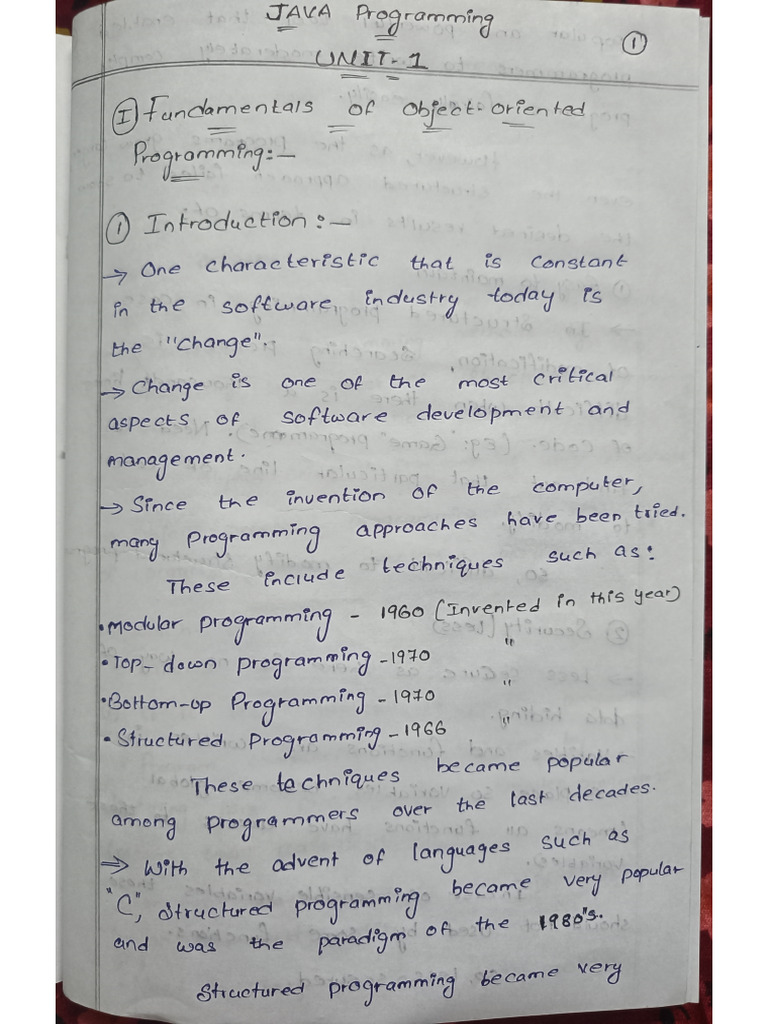 JAVA Programming
①
UNIT-1
Ⓘ Fundamentals of object-oriented
Programming:-
① Introduction:-
→ One characteristic that is constant
in the software industry today is
the "change".
→ Change is one of the most critical
aspects of software development and
management.
→ Since the invention of the computer,
many programming approaches have been tried.
These include techniques such as:
• Modular programming - 1960 (Invented in this year)
• Top-down programming - 1970 "
• Bottom-up Programming - 1970 "
• Structured Programming - 1966 "
These techniques became popular
among programmers over the last decades.
⇒ With the advent of languages such as
"C", structured programming became very popular
and was the paradigm of the 1980's.
Structured programming became very